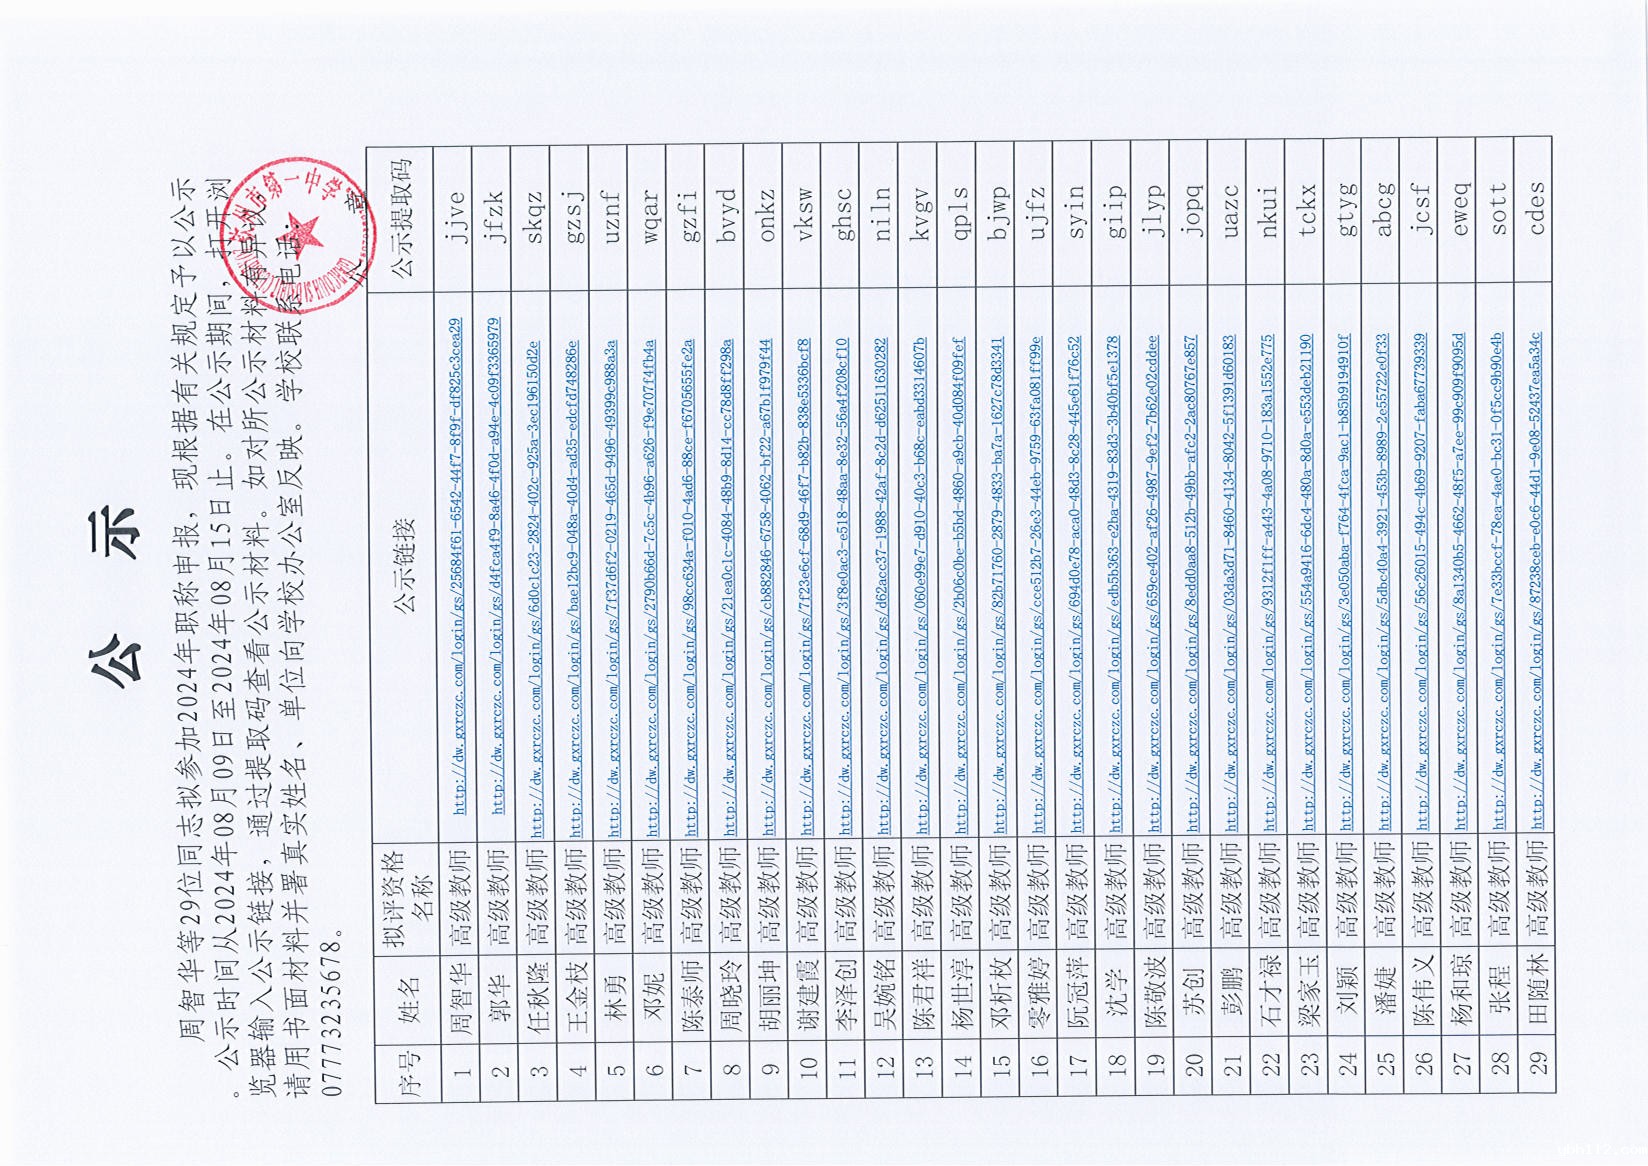 公 示
周智华等29位同志拟参加2024年职称申报，现根据有关规定予以公示
。公示时间从2024年08月09日至2024年08月15日止。在公示期间，打开浏
览器输入公示链接，通过提取码查看公示材料。如对所公示材料有异议，
请用书面材料并署真实姓名、单位向学校办公室反映。学校联系电话：
07773235678。
公 章
州市第一中学
序号 姓名 拟评资格名称 公示链接 公示提取码
1 周智华 高级教师 http://dw.gxrczc.com/login/gs/25684f61-6542-44f7-8f9f-df825c3cea29 jjve
2 郭华 高级教师 http://dw.gxrczc.com/login/gs/d4fca4f9-8a46-4f0d-a94e-4c09f3365979 jfzk
3 任秋隆 高级教师 http://dw.gxrczc.com/login/gs/6d0c1c23-2824-402c-925a-3ec196150d2e skqz
4 王金枝 高级教师 http://dw.gxrczc.com/login/gs/bae12bc9-048a-40d4-ad35-edcfd748286e gzsj
5 林勇 高级教师 http://dw.gxrczc.com/login/gs/7f37d6f2-0219-465d-9496-49399c988a3a uznf
6 邓妮 高级教师 http://dw.gxrczc.com/login/gs/2790b66d-7c5c-4b96-a626-f9e707f4fb4a wqar
7 陈泰师 高级教师 http://dw.gxrczc.com/login/gs/98cc634a-f010-4ad6-88ce-f6705655fe2a gzfi
8 周晓玲 高级教师 http://dw.gxrczc.com/login/gs/21ea0c1c-4084-48b9-8d14-cc78d8ff298a bvyd
9 胡丽坤 高级教师 http://dw.gxrczc.com/login/gs/cb882846-6758-4062-bf22-a67b1f979f44 onkz
10 谢建霞 高级教师 http://dw.gxrczc.com/login/gs/7f23e6cf-68d9-46f7-b82b-838e5336bcf8 vksw
11 李泽创 高级教师 http://dw.gxrczc.com/login/gs/3f8e0ac3-e518-48aa-8e32-56a4f208cf10 ghsc
12 吴婉铭 高级教师 http://dw.gxrczc.com/login/gs/d62acc37-1988-42af-8c2d-d62511630282 niln
13 陈君祥 高级教师 http://dw.gxrczc.com/login/gs/060e99e7-d910-40c3-b68c-eabd3314607b kvgv
14 杨世淳 高级教师 http://dw.gxrczc.com/login/gs/2b06c0be-b5bd-4860-a9cb-40d084f09fef qpls
15 邓析枚 高级教师 http://dw.gxrczc.com/login/gs/82b71760-2879-4833-ba7a-1627c78d3341 bjwp
16 零雅婷 高级教师 http://dw.gxrczc.com/login/gs/cce512b7-26e3-44eb-9759-63fa081ff99e ujfz
17 阮冠萍 高级教师 http://dw.gxrczc.com/login/gs/694d0e78-aca0-48d3-8c28-445e61f76c52 syin
18 沈学 高级教师 http://dw.gxrczc.com/login/gs/edb5b363-e2ba-4319-83d3-3b40bf5e1378 giip
19 陈敬波 高级教师 http://dw.gxrczc.com/login/gs/659ce402-af26-4987-9ef2-7b62e02cddee jlyp
20 苏创 高级教师 http://dw.gxrczc.com/login/gs/8edd0aa8-512b-49bb-afc2-2ac80767e857 jopq
21 彭鹏 高级教师 http://dw.gxrczc.com/login/gs/03da3d71-8460-4134-8042-5f1391d60183 uazc
22 石才禄 高级教师 http://dw.gxrczc.com/login/gs/9312f1ff-a443-4a08-9710-183a1552e775 nkui
23 梁家玉 高级教师 http://dw.gxrczc.com/login/gs/554a9416-6dc4-480a-8d0a-e553deb21190 tckx
24 刘颖 高级教师 http://dw.gxrczc.com/login/gs/3e050aba-f764-4fca-9ac1-b85b9194910f gtyg
25 潘婕 高级教师 http://dw.gxrczc.com/login/gs/5dbc40a4-3921-453b-8989-2e55722e0f33 abcg
26 陈伟义 高级教师 http://dw.gxrczc.com/login/gs/56c26015-494c-4b69-9207-faba67739339 jcsf
27 杨和琼 高级教师 http://dw.gxrczc.com/login/gs/8a1340b5-4662-48f5-a7ee-99c909f9095d eweq
28 张程 高级教师 http://dw.gxrczc.com/login/gs/7e33bccf-78ea-4ae0-bc31-0f5cc9b90e4b sott
29 田随林 高级教师 http://dw.gxrczc.com/login/gs/87238ceb-e0c6-44d1-9e08-52437ea5a34c cdes